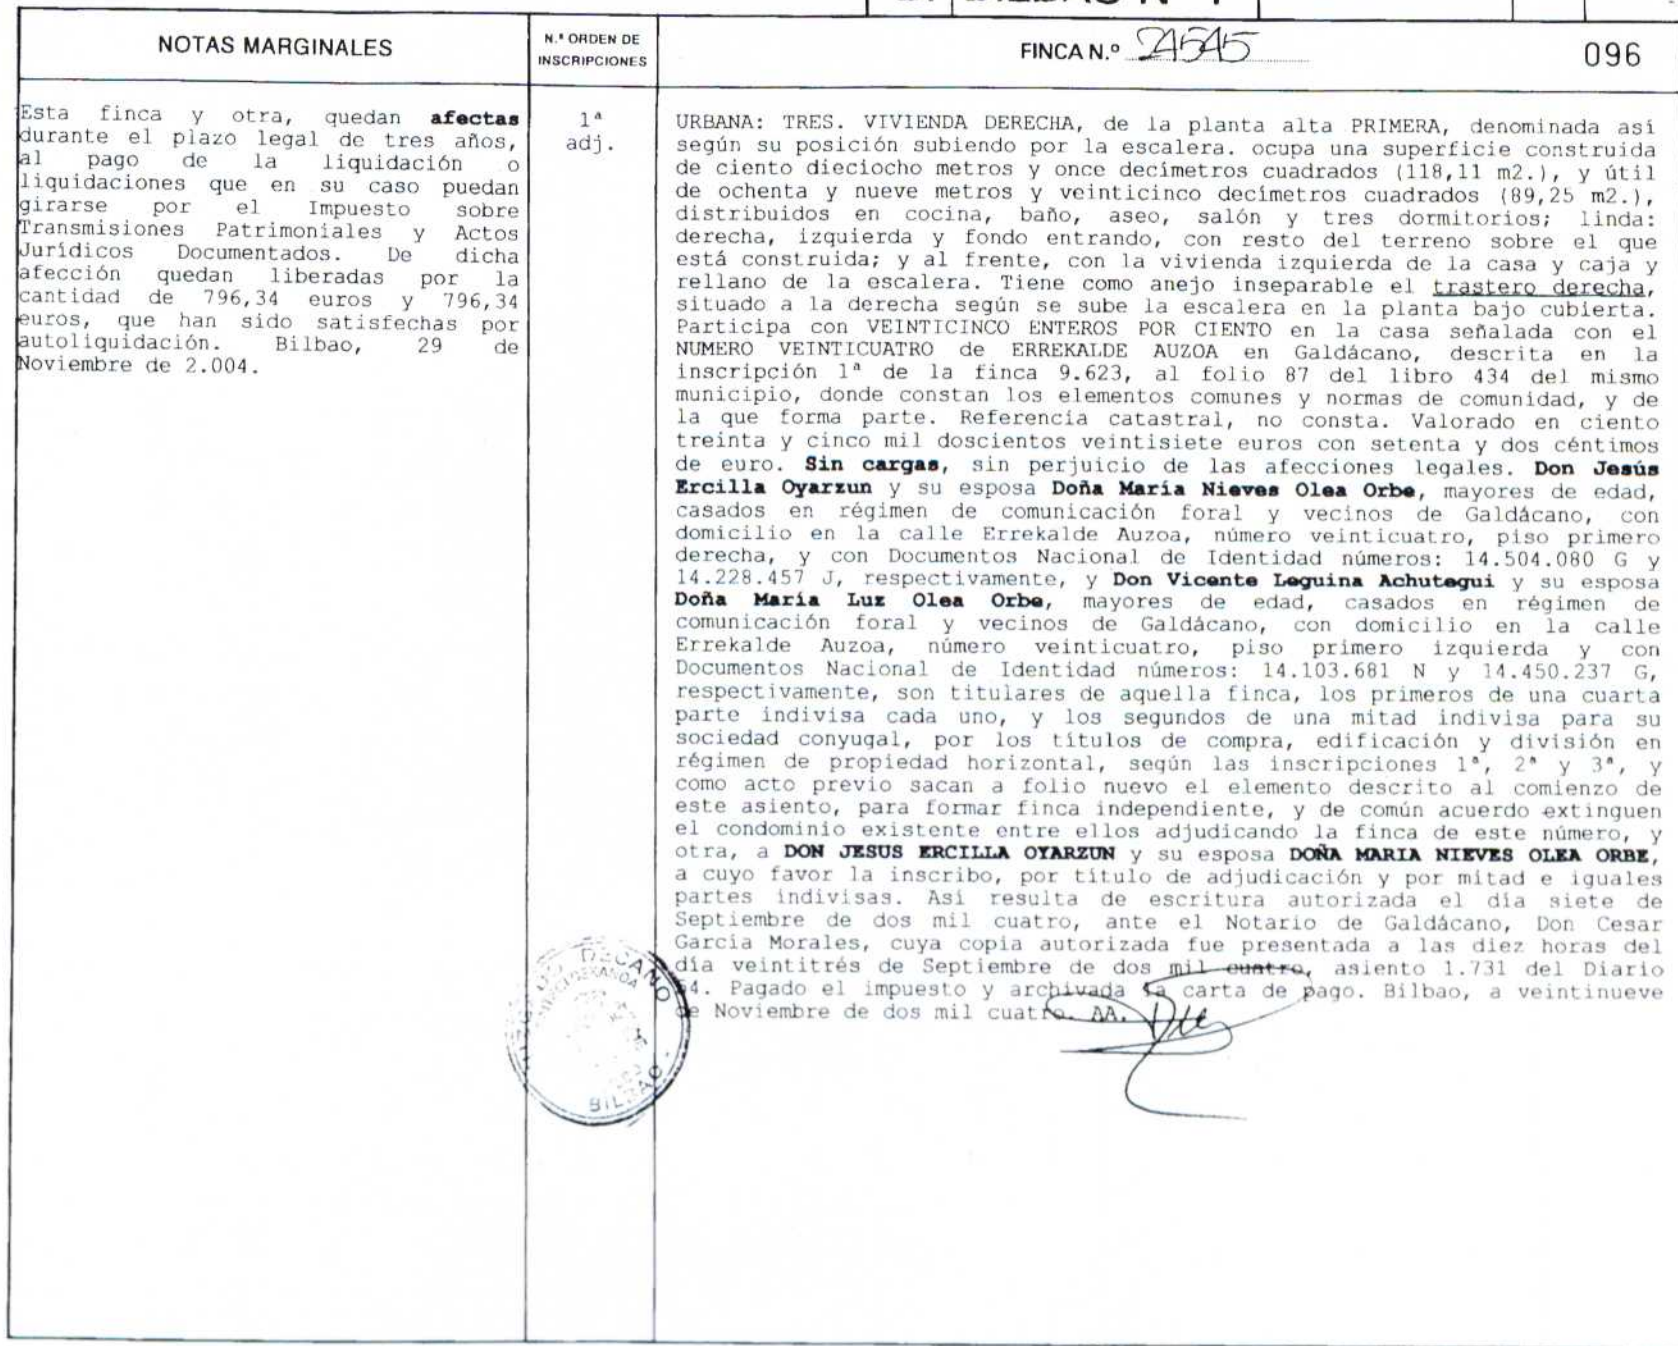 NOTAS MARGINALES
N.º ORDEN DE
INSCRIPCIONES
FINCA N.º 24545
096
Esta finca y otra, quedan afectas
durante el plazo legal de tres años,
al pago de la liquidación o
liquidaciones que en su caso puedan
girarse por el Impuesto sobre
Transmisiones Patrimoniales y Actos
Jurídicos Documentados. De dicha
afección quedan liberadas por la
cantidad de 796,34 euros y 796,34
euros, que han sido satisfechas por
autoliquidación. Bilbao, 29 de
Noviembre de 2.004.
1ª
adj.
URBANA: TRES. VIVIENDA DERECHA, de la planta alta PRIMERA, denominada así
según su posición subiendo por la escalera. ocupa una superficie construida
de ciento dieciocho metros y once decímetros cuadrados (118,11 m2.), y útil
de ochenta y nueve metros y veinticinco decímetros cuadrados (89,25 m2.),
distribuidos en cocina, baño, aseo, salón y tres dormitorios; linda:
derecha, izquierda y fondo entrando, con resto del terreno sobre el que
está construida; y al frente, con la vivienda izquierda de la casa y caja y
rellano de la escalera. Tiene como anejo inseparable el trastero derecha,
situado a la derecha según se sube la escalera en la planta bajo cubierta.
Participa con VEINTICINCO ENTEROS POR CIENTO en la casa señalada con el
NUMERO VEINTICUATRO de ERREKALDE AUZOA en Galdácano, descrita en la
inscripción 1ª de la finca 9.623, al folio 87 del libro 434 del mismo
municipio, donde constan los elementos comunes y normas de comunidad, y de
la que forma parte. Referencia catastral, no consta. Valorado en ciento
treinta y cinco mil doscientos veintisiete euros con setenta y dos céntimos
de euro. Sin cargas, sin perjuicio de las afecciones legales. Don Jesús
Ercilla Oyarzun y su esposa Doña María Nieves Olea Orbe, mayores de edad,
casados en régimen de comunicación foral y vecinos de Galdácano, con
domicilio en la calle Errekalde Auzoa, número veinticuatro, piso primero
derecha, y con Documentos Nacional de Identidad números: 14.504.080 G y
14.228.457 J, respectivamente, y Don Vicente Leguina Achutegui y su esposa
Doña María Luz Olea Orbe, mayores de edad, casados en régimen de
comunicación foral y vecinos de Galdácano, con domicilio en la calle
Errekalde Auzoa, número veinticuatro, piso primero izquierda y con
Documentos Nacional de Identidad números: 14.103.681 N y 14.450.237 G,
respectivamente, son titulares de aquella finca, los primeros de una cuarta
parte indivisa cada uno, y los segundos de una mitad indivisa para su
sociedad conyugal, por los títulos de compra, edificación y división en
régimen de propiedad horizontal, según las inscripciones 1ª, 2ª y 3ª, y
como acto previo sacan a folio nuevo el elemento descrito al comienzo de
este asiento, para formar finca independiente, y de común acuerdo extinguen
el condominio existente entre ellos adjudicando la finca de este número, y
otra, a DON JESUS ERCILLA OYARZUN y su esposa DOÑA MARIA NIEVES OLEA ORBE,
a cuyo favor la inscribo, por título de adjudicación y por mitad e iguales
partes indivisas. Así resulta de escritura autorizada el día siete de
Septiembre de dos mil cuatro, ante el Notario de Galdácano, Don Cesar
García Morales, cuya copia autorizada fue presentada a las diez horas del
día veintitrés de Septiembre de dos mil cuatro, asiento 1.731 del Diario
4. Pagado el impuesto y archivada la carta de pago. Bilbao, a veintinueve
de Noviembre de dos mil cuatro. AA.
DECANO
BILBAO